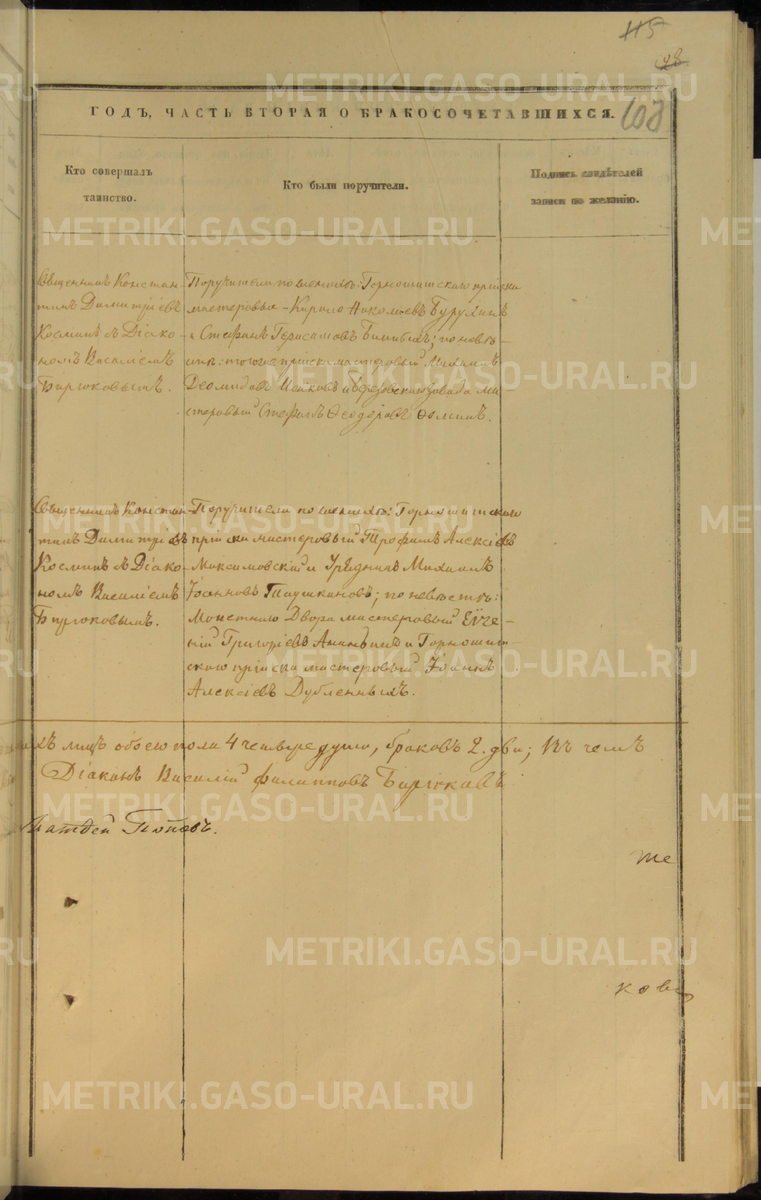 115
ГОДЪ, ЧАСТЬ ВТОРАЯ О БРАКОСОЧЕТАВШИХСЯ.
Кто совершалъ
таинство.
Кто были поручители.
Подпись свидѣтелей
записи по желанію.
Священникъ Констан-
тинъ Димитріевъ
Косминъ съ Діако-
номъ Василіемъ
Бирюковымъ.
Поручители по женихѣ: Горнощитскаго пріиска
мастеровые - Кирило Николаевъ
и Стефанъ Герасимовъ по невѣ-
стѣ: тогоже пріиска мастеровый Михаилъ
Диомидовъ Исаковъ и Березовскаго завода ма-
стеровый Стефанъ Ѳеодоровъ
Священникъ Констан-
тинъ Димитріевъ
Косминъ съ Діако-
номъ Василіемъ
Бирюковымъ.
Поручители по женихѣ: Горнощитскаго
пріиска мастеровый Трофимъ Алексіевъ
Максимовскій и Урядникъ Михаилъ
Іоанновъ по невѣстѣ:
Монетнаго Двора мастеровый Евге-
ній Григоріевъ Ананьинъ и Горнощит-
скаго пріиска мастеровый Іоаннъ
Алексіевъ Дубленныхъ.
хъ лицъ обоего пола 4 четыре души, браковъ 2. два; въ чемъ
Діаконъ Василій Филипповъ Бирюковъ
Матѳей Поповъ.
те
ковъ
METRIKI.GASO-URAL.RU